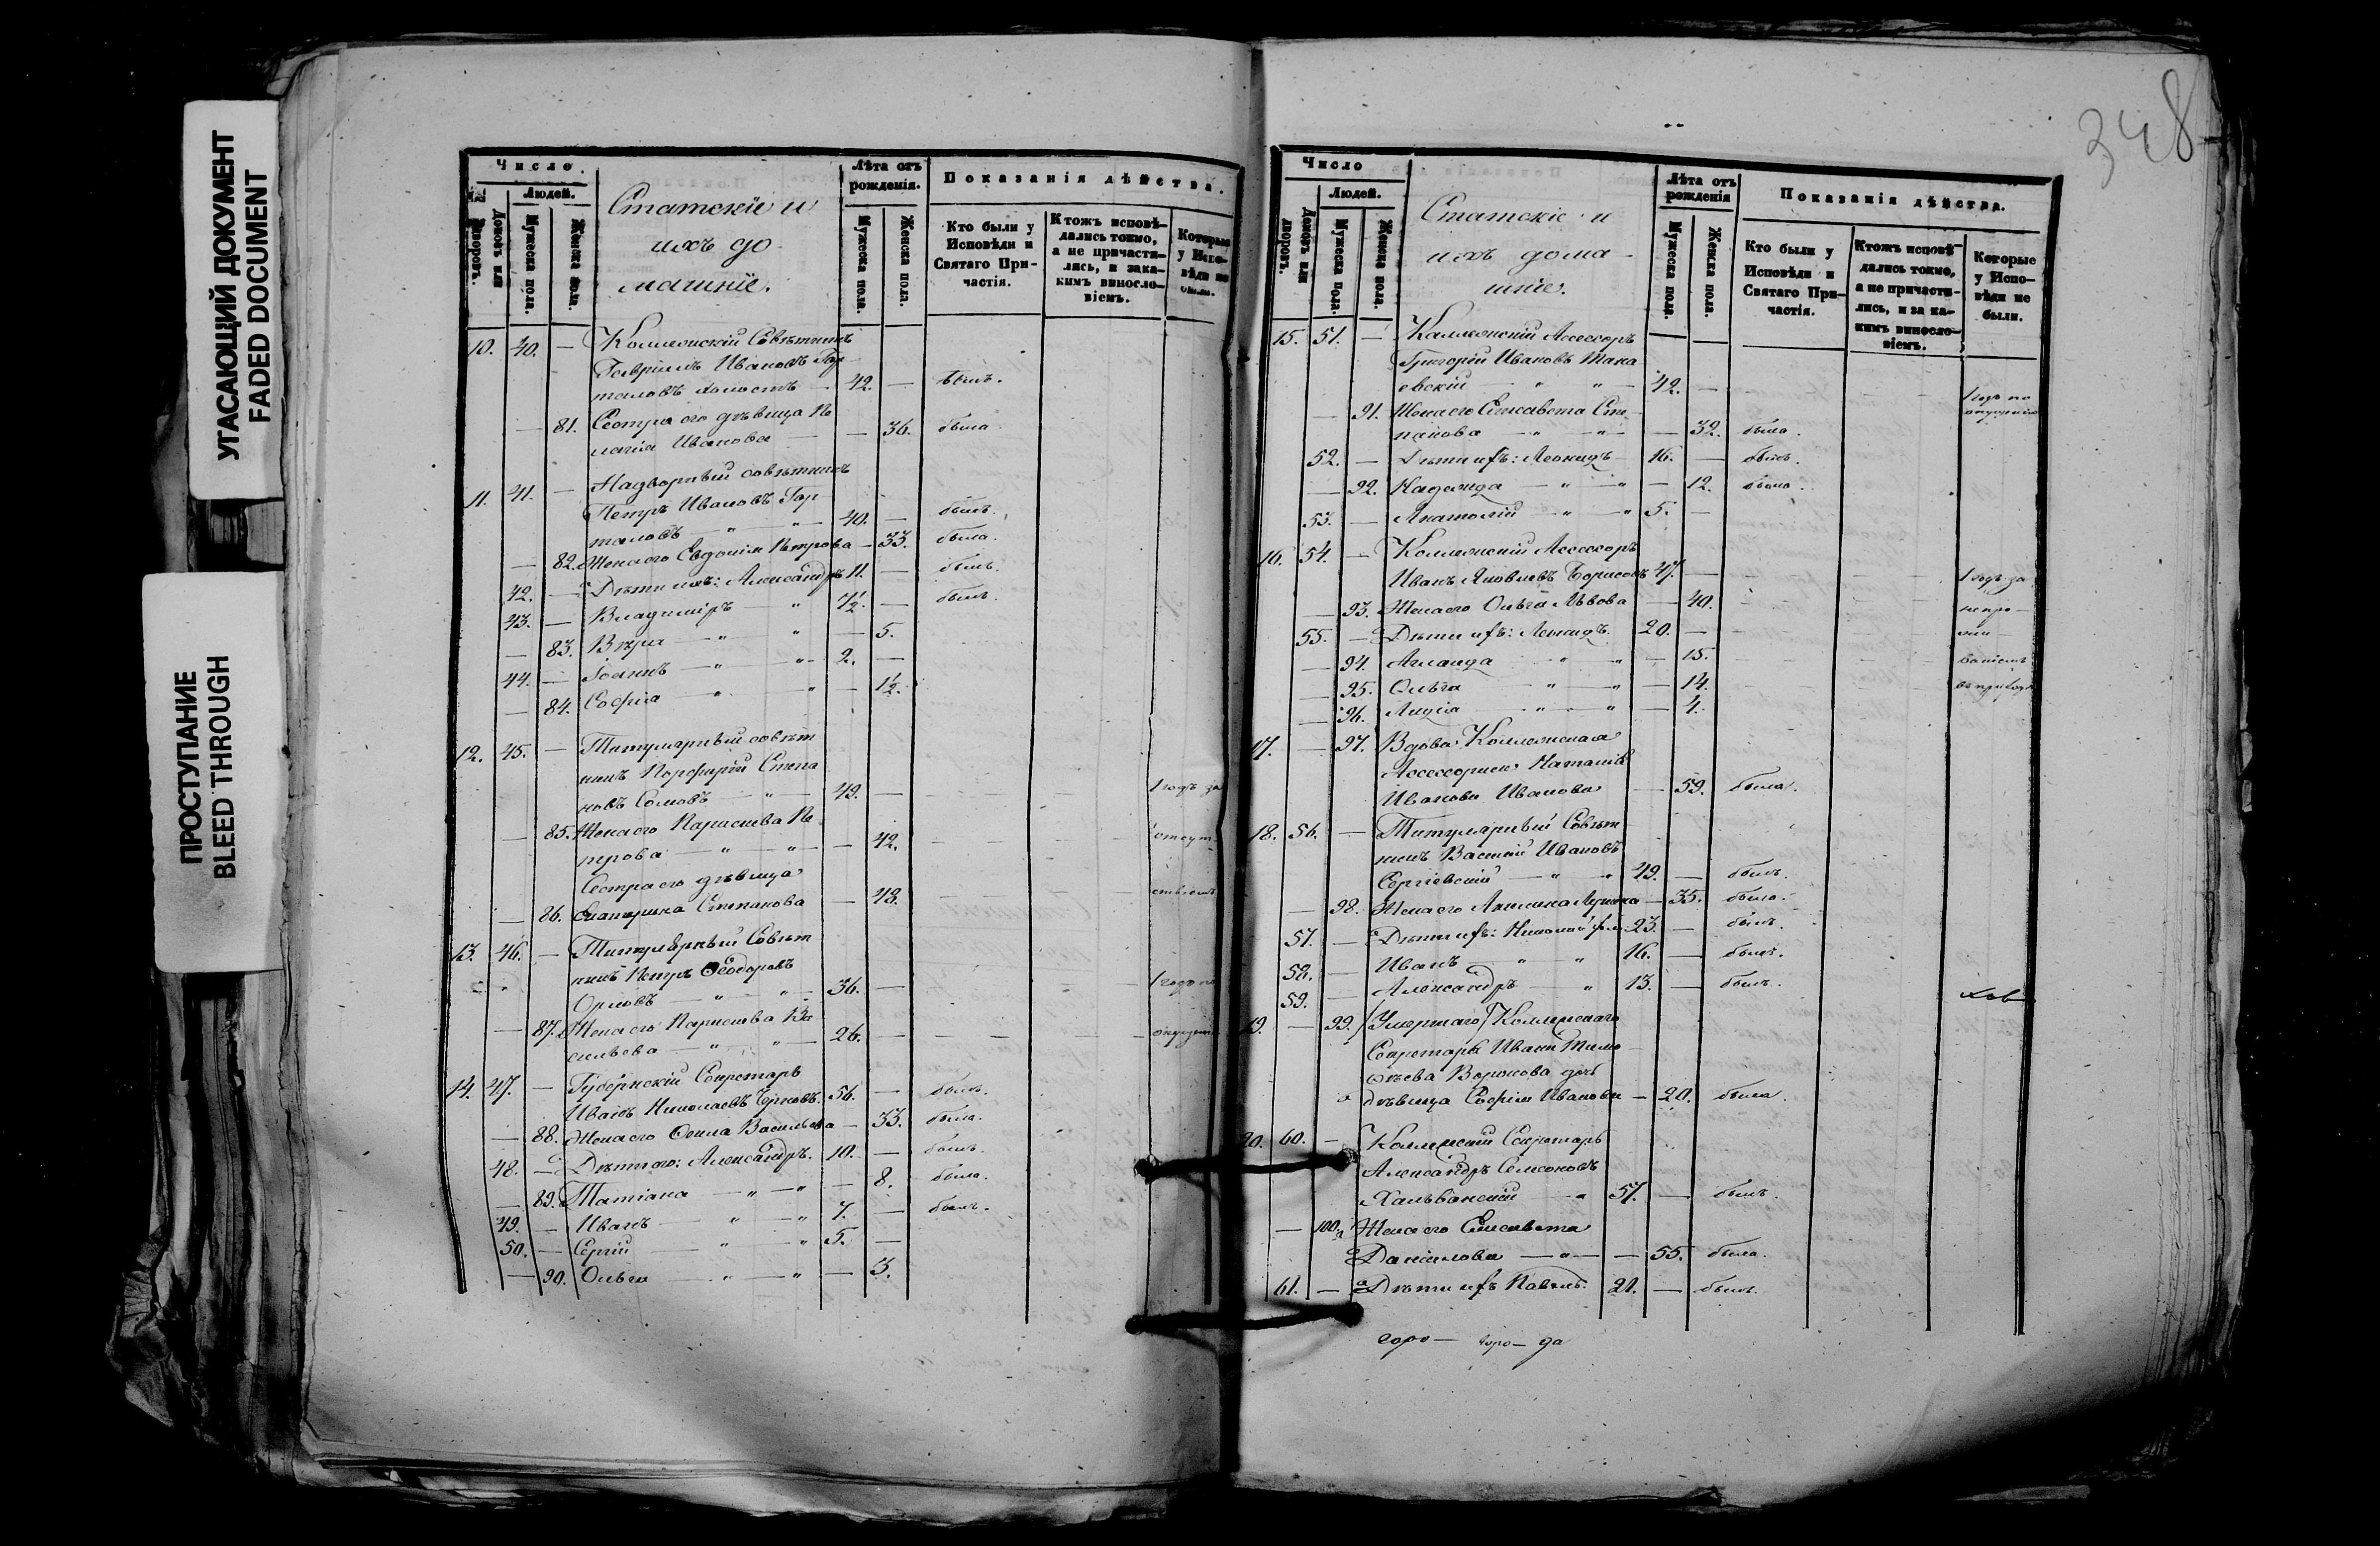 УГАСАЮЩИЙ ДОКУМЕНТ
FADED DOCUMENT
ПРОСТУПАНИЕ
BLEED THROUGH
Число.
Людей.
Домовъ или дворовъ.
Мужеска пола.
Женска пола.
Статскіе и
ихъ до-
машніе.
Лѣта отъ рожденія.
Мужеска пола.
Женска пола.
Показанія дѣйства.
Кто были у Исповѣди и Святаго При-частія.
Ктожъ исповѣ-дались токмо, а не причасти-лись, и зака-кимъ винос­ло-віемъ.
Которые у Испо-вѣди не были.
10. 40. — Коллежскій Совѣтникъ
Гавріилъ Ивановъ Гор-
таловъ холостъ — 42. — былъ.
— 81. Сестра его дѣвица Пе
лагія Иванова — — 36. была.
11. 41. — Надворный совѣтникъ
Петръ Ивановъ Гор-
таловъ — " — " — 40. — былъ.
— 82. Жена его Евдокія Петрова — 33. была.
42. — Дѣти ихъ: Александръ 11. — былъ.
43. — Владиміръ — " 7½. — былъ.
— 83. Вѣра — " " — 5.
44. — Іоаннъ — " " — 2. —
— 84. Софія — " " — 1½.
12. 45. — Титулярный совѣт
никъ Порфирій Степа
новъ Сомовъ — " — 49. — 1 годъ за
— 85. Жена его Параскева Пе
трова — " — " — — 42. отсут
Сестра его дѣвица
— 86. Екатерина Степанова — 43. ствіемъ
13. 46. — Титулярный Совѣт
никъ Петръ Ѳеодоровъ
Орловъ — " — " — 36. — 1 годъ по
— 87. Жена его Параскева Ва
сильева — " — " — 26. — опущенію
14. 47. — Губернскій Секретарь
Иванъ Николаевъ 56. — былъ.
— 88. Жена его Васильева — 33. была.
48. — Дѣти его: Александръ. 10. — былъ.
— 89. Татіана — " — " — 8. была.
49. — Иванъ — " — " 7. — былъ.
50. — Сергій — " — " 5. —
— 90. Ольга — " — " — 3.
348
Число
Людей.
Домовъ или дворовъ.
Мужеска пола.
Женска пола.
Статскіе и
ихъ дома-
шніе.
Лѣта отъ рожденія
Мужеска пола.
Женска пола.
Показанія дѣйства.
Кто были у Исповѣди и Святаго При-частія.
Ктожъ исповѣ-дались токмо, а не причасти-лись, и за ка-кимъ винос­ло-віемъ.
Которые у Испо-вѣди не были.
15. 51. — Коллежскій Ассессоръ
Григорій Ивановъ Мака
евскій — " " — 42. — 1 годъ по опущенію
— 91. Жена его Елисавета Сте-
панова — " — " — — 32. была.
52. — Дѣти ихъ: Леонидъ 16. — былъ.
— 92. Надежда — " — " — 12. была.
53. — Анатолій — " — " 5. —
16. 54. — Коллежскій Ассессоръ
Иванъ Яковлевъ Борисовъ 47. — 1 годъ за
— 93. Жена его Ольга Львова — 40. непро-
55. — Дѣти ихъ: Леонидъ. 20. — жи
— 94. Аглаида — " — " — 15. ваніемъ
— 95. Ольга — " — " — 14. въ приходѣ
— 96. Лидія — " — " — 4.
17. — 97. Вдова Коллежская
Ассессорша Наталія
Иванова Иванова — 59. была.
18. 56. — Титулярный Совѣт
никъ Василій Ивановъ
Сергіевскій — " — " 49. — былъ.
— 98. Жена его Акилина — 35. была.
57. — Дѣти ихъ: Николай 23. — былъ.
58. — Иванъ — " — " 16. — былъ.
59. — Александръ — " 13. — былъ.
19. — 99. (Умершаго) Коллежскаго
Секретаря Ивана Тимо
ѳѣева Воронова дочь
дѣвица Софія Иванова — 20. была.
20. 60. — Коллежскій Секретарь
Александръ Самсоновъ
Хальванскій — " 57. — былъ.
— 100. Жена его Елисавета
Даніилова — " — — 55. была.
61. — Дѣти ихъ Павелъ. 21. — былъ.